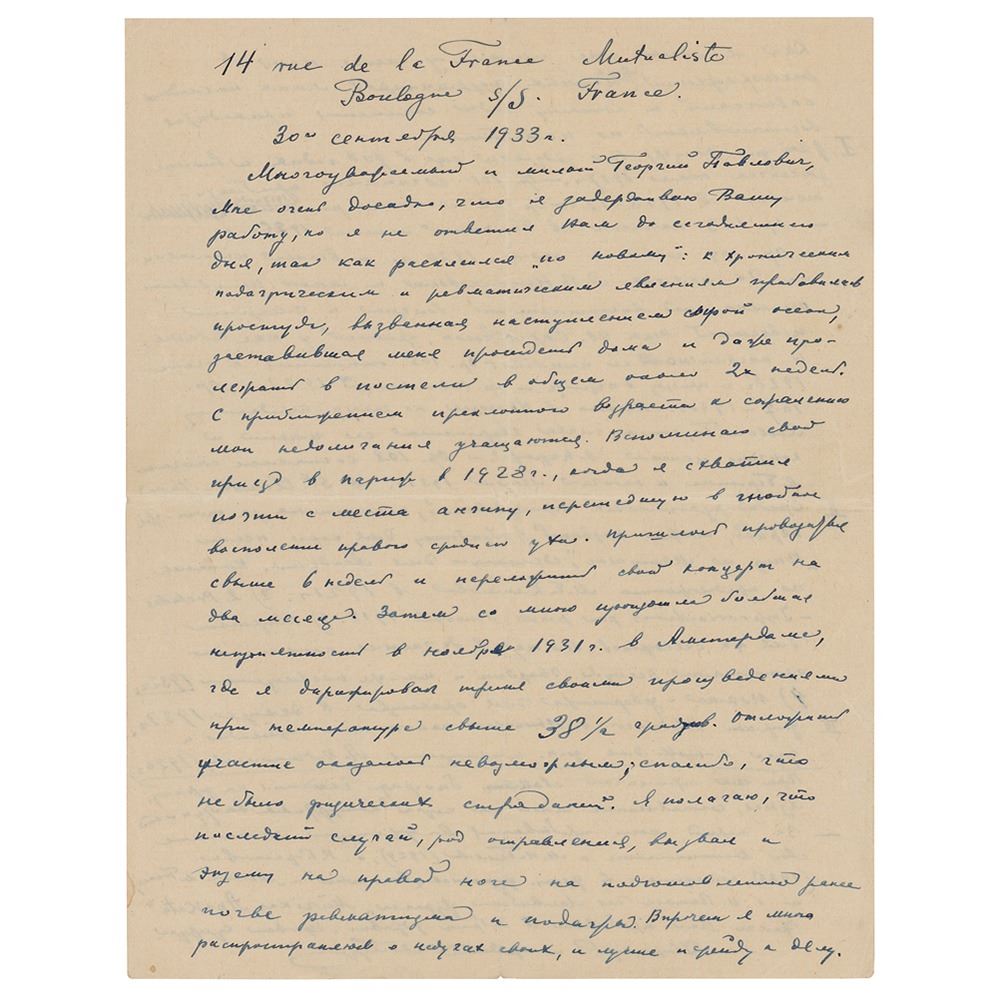 14 rue de la France Mutualiste
Boulogne s/S. France.
30го сентября 1933 г.
Многоуважаемый и милый Георгий Павлович,
Мне очень досадно, что я задерживаю Вашу
работу, но я не ответил Вам до сегодняшнего
дня, так как расклеился „по новому": к хроническим
подагрическим и ревматическим явлениям прибавилась
простуда, вызванная наступлением сырой осени,
заставившая меня просидеть дома и даже про-
лежать в постели в общем около 2х недель.
С приближением преклонного возраста к сожалению
мои недомогания учащаются. Вспоминаю свой
приезд в Париж в 1928 г., когда я схватил
почти с места ангину, перешедшую в гнойное
воспаление правого среднего уха. Пришлось
свыше 6 недель и переложить свой концерт на
два месяца. Затем со мною произошла большая
неприятность в ноябре 1931 г. в Амстердаме,
где я дирижировал тремя своими произведениями
при температуре свыше 38 1/2 градусов. Отложить
участие оказалось невозможным; спасибо, что
не было физических страданий. Я полагаю, что
последний случай, род отравления, вызвал и
экзему на правой ноге на подготовленной ранее
почве ревматизма и подагры. Впрочем я много
распространяюсь о недугах своих, и лучше перейду к делу.